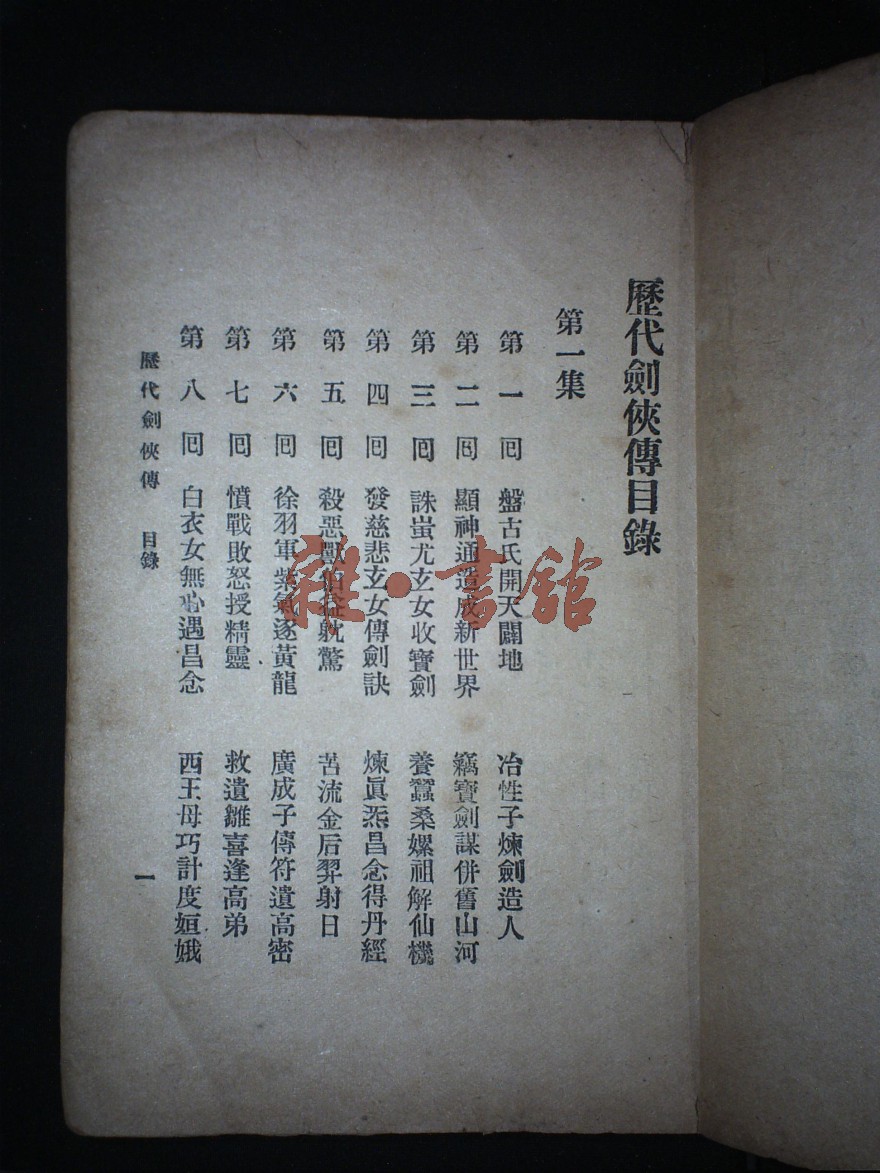 歷代劍俠傳目錄
第一集
第一回 盤古氏開天闢地 冶性子煉劍造人
第二回 顯神通造成新世界 竊寶劍謀併舊山河
第三回 誅蚩尤玄女收寶劍 養蠶桑嫘祖解仙機
第四回 發慈悲玄女傳劍訣 煉眞炁昌念得丹經
第五回 殺惡獸伯益躭驚 苦流金后羿射日
第六回 徐羽軍紫氣逐黃龍 廣成子傳符遺高密
第七回 憤戰敗怒授精靈 救遺雛喜逢高弟
第八回 白衣女無心遇昌念 西王母巧計度姮娥
歷代劍俠傳 目錄
一
雜·書館